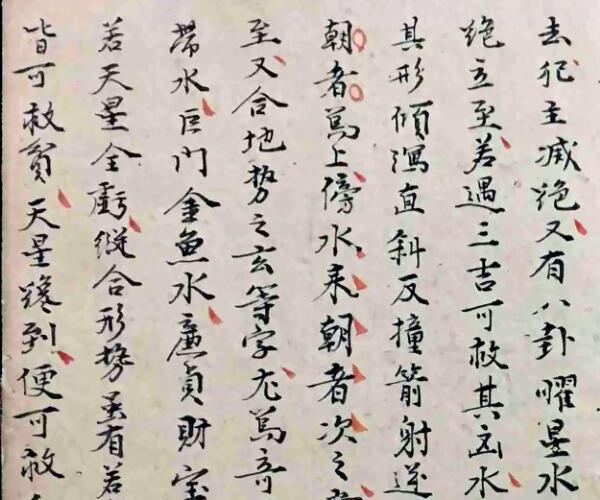 去犯主滅絶又有八卦曜星水
絶立至若遇三吉可救其凶水
其形傾瀉直斜反撞箭射逆
朝者爲上傍水來朝者次之
至又合地勢之玄等字尤爲奇
帶水巨門金魚水廉貞財宝
若天星全虧縱合形勢虽有若
皆可救貧天星纔到便可救